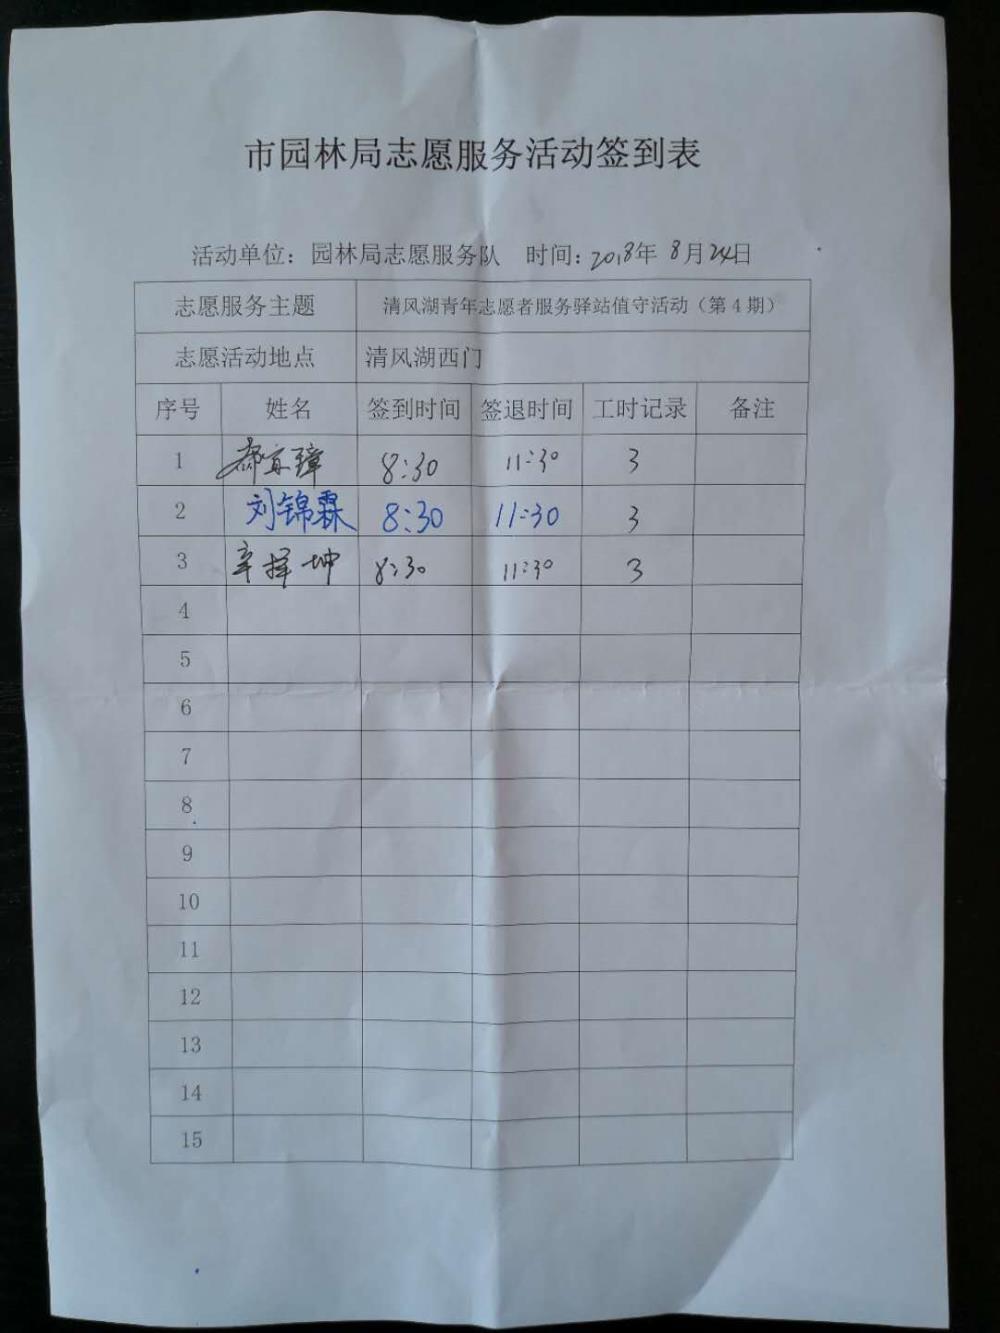 市园林局志愿服务活动签到表
活动单位：园林局志愿服务队 时间：2018年 8月24日
志愿服务主题 清风湖青年志愿者服务驿站值守活动（第4期）
志愿活动地点 清风湖西门
序号 姓名 签到时间 签退时间 工时记录 备注
1 8:30 11:30 3
2 刘锦霖 8:30 11:30 3
3 辛择坤 8:30 11:30 3
4
5
6
7
8
9
10
11
12
13
14
15